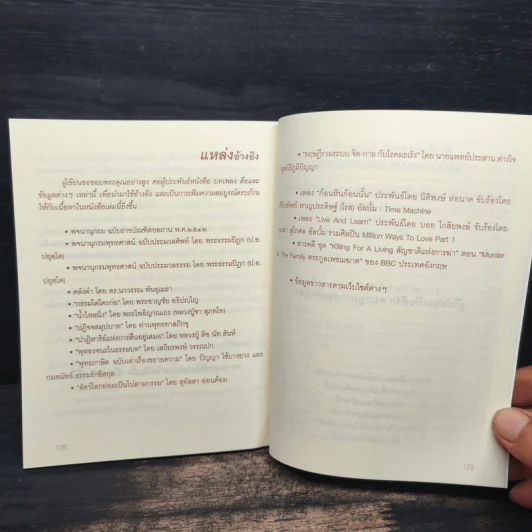 แหล่งอ้างอิง
ผู้เขียนขอขอบพระคุณอย่างสูง ต่อผู้ประพันธ์หนังสือ บทเพลง สื่อและ
ข้อมูลต่างๆ เหล่านี้ เพื่อนำมาใช้อ้างอิง และเป็นการเพิ่มความสมบูรณ์ครบถ้วน
ให้กับเนื้อหาในหนังสือเล่มนี้ยิ่งขึ้น
• พจนานุกรม ฉบับราชบัณฑิตยสถาน พ.ศ.๒๕๔๒
• พจนานุกรมพุทธศาสน์ ฉบับประมวลศัพท์ โดย พระธรรมปิฎก (ป.อ.
ปยุตฺโต)
• พจนานุกรมพุทธศาสน์ ฉบับประมวลธรรม โดย พระธรรมปิฎก (ป.อ.
ปยุตฺโต)
• คลังคำ โดย ดร.นววรรณ พันธุเมธา
• "กรรมใดใครก่อ" โดย พระชาญชัย อธิปญฺโญ
• "น้ำไหลนิ่ง" โดย พระโพธิญาณเถร (หลวงปู่ชา สุภทฺโท)
• "ปฏิจจสมุปบาท" โดย ท่านพุทธทาสภิกขุ
• "ปาฏิหาริย์แห่งการตื่นอยู่เสมอ" โดย หลวงปู่ ติช.นัท ฮันห์
• "พุทธวจนะในธรรมบท" โดย เสถียรพงษ์ วรรณปก
• "พุทธภาษิต ฉบับเล่าเรื่องขยายความ" โดย ปัญญา ใช้บางยาง และ
กมลนัทธ์ ธรรมรักขิตกุล
• "สัตว์โลกย่อมเป็นไปตามกรรม" โดย สุทัสสา อ่อนค้อม
128
• "ทฤษฎีรวมระบบ จิต-กาย กับโรคมะเร็ง" โดย นายแพทย์ประสาน ต่างใจ
ภูมิปัญญา
• เพลง "ก้อนหินก้อนนั้น" ประพันธ์โดย นิติพงษ์ ห่อนาค ขับร้องโดย
สายประดิษฐ์ (โรส) อัลบั้ม : Time Machine
• เพลง "Live And Learn" ประพันธ์โดย บอย โกสิยพงษ์ ขับร้องโดย
ยุคัล อัลบั้ม รวมศิลปิน Million Ways To Love Part 1
• สารคดี ชุด "Killing For A Living สัญชาติแห่งการฆ่า" ตอน "Murder
The Family ตระกูลเพชฌฆาต" ของ BBC ประเทศอังกฤษ
• ข้อมูลข่าวสารตามเว็บไซต์ต่างๆ
129